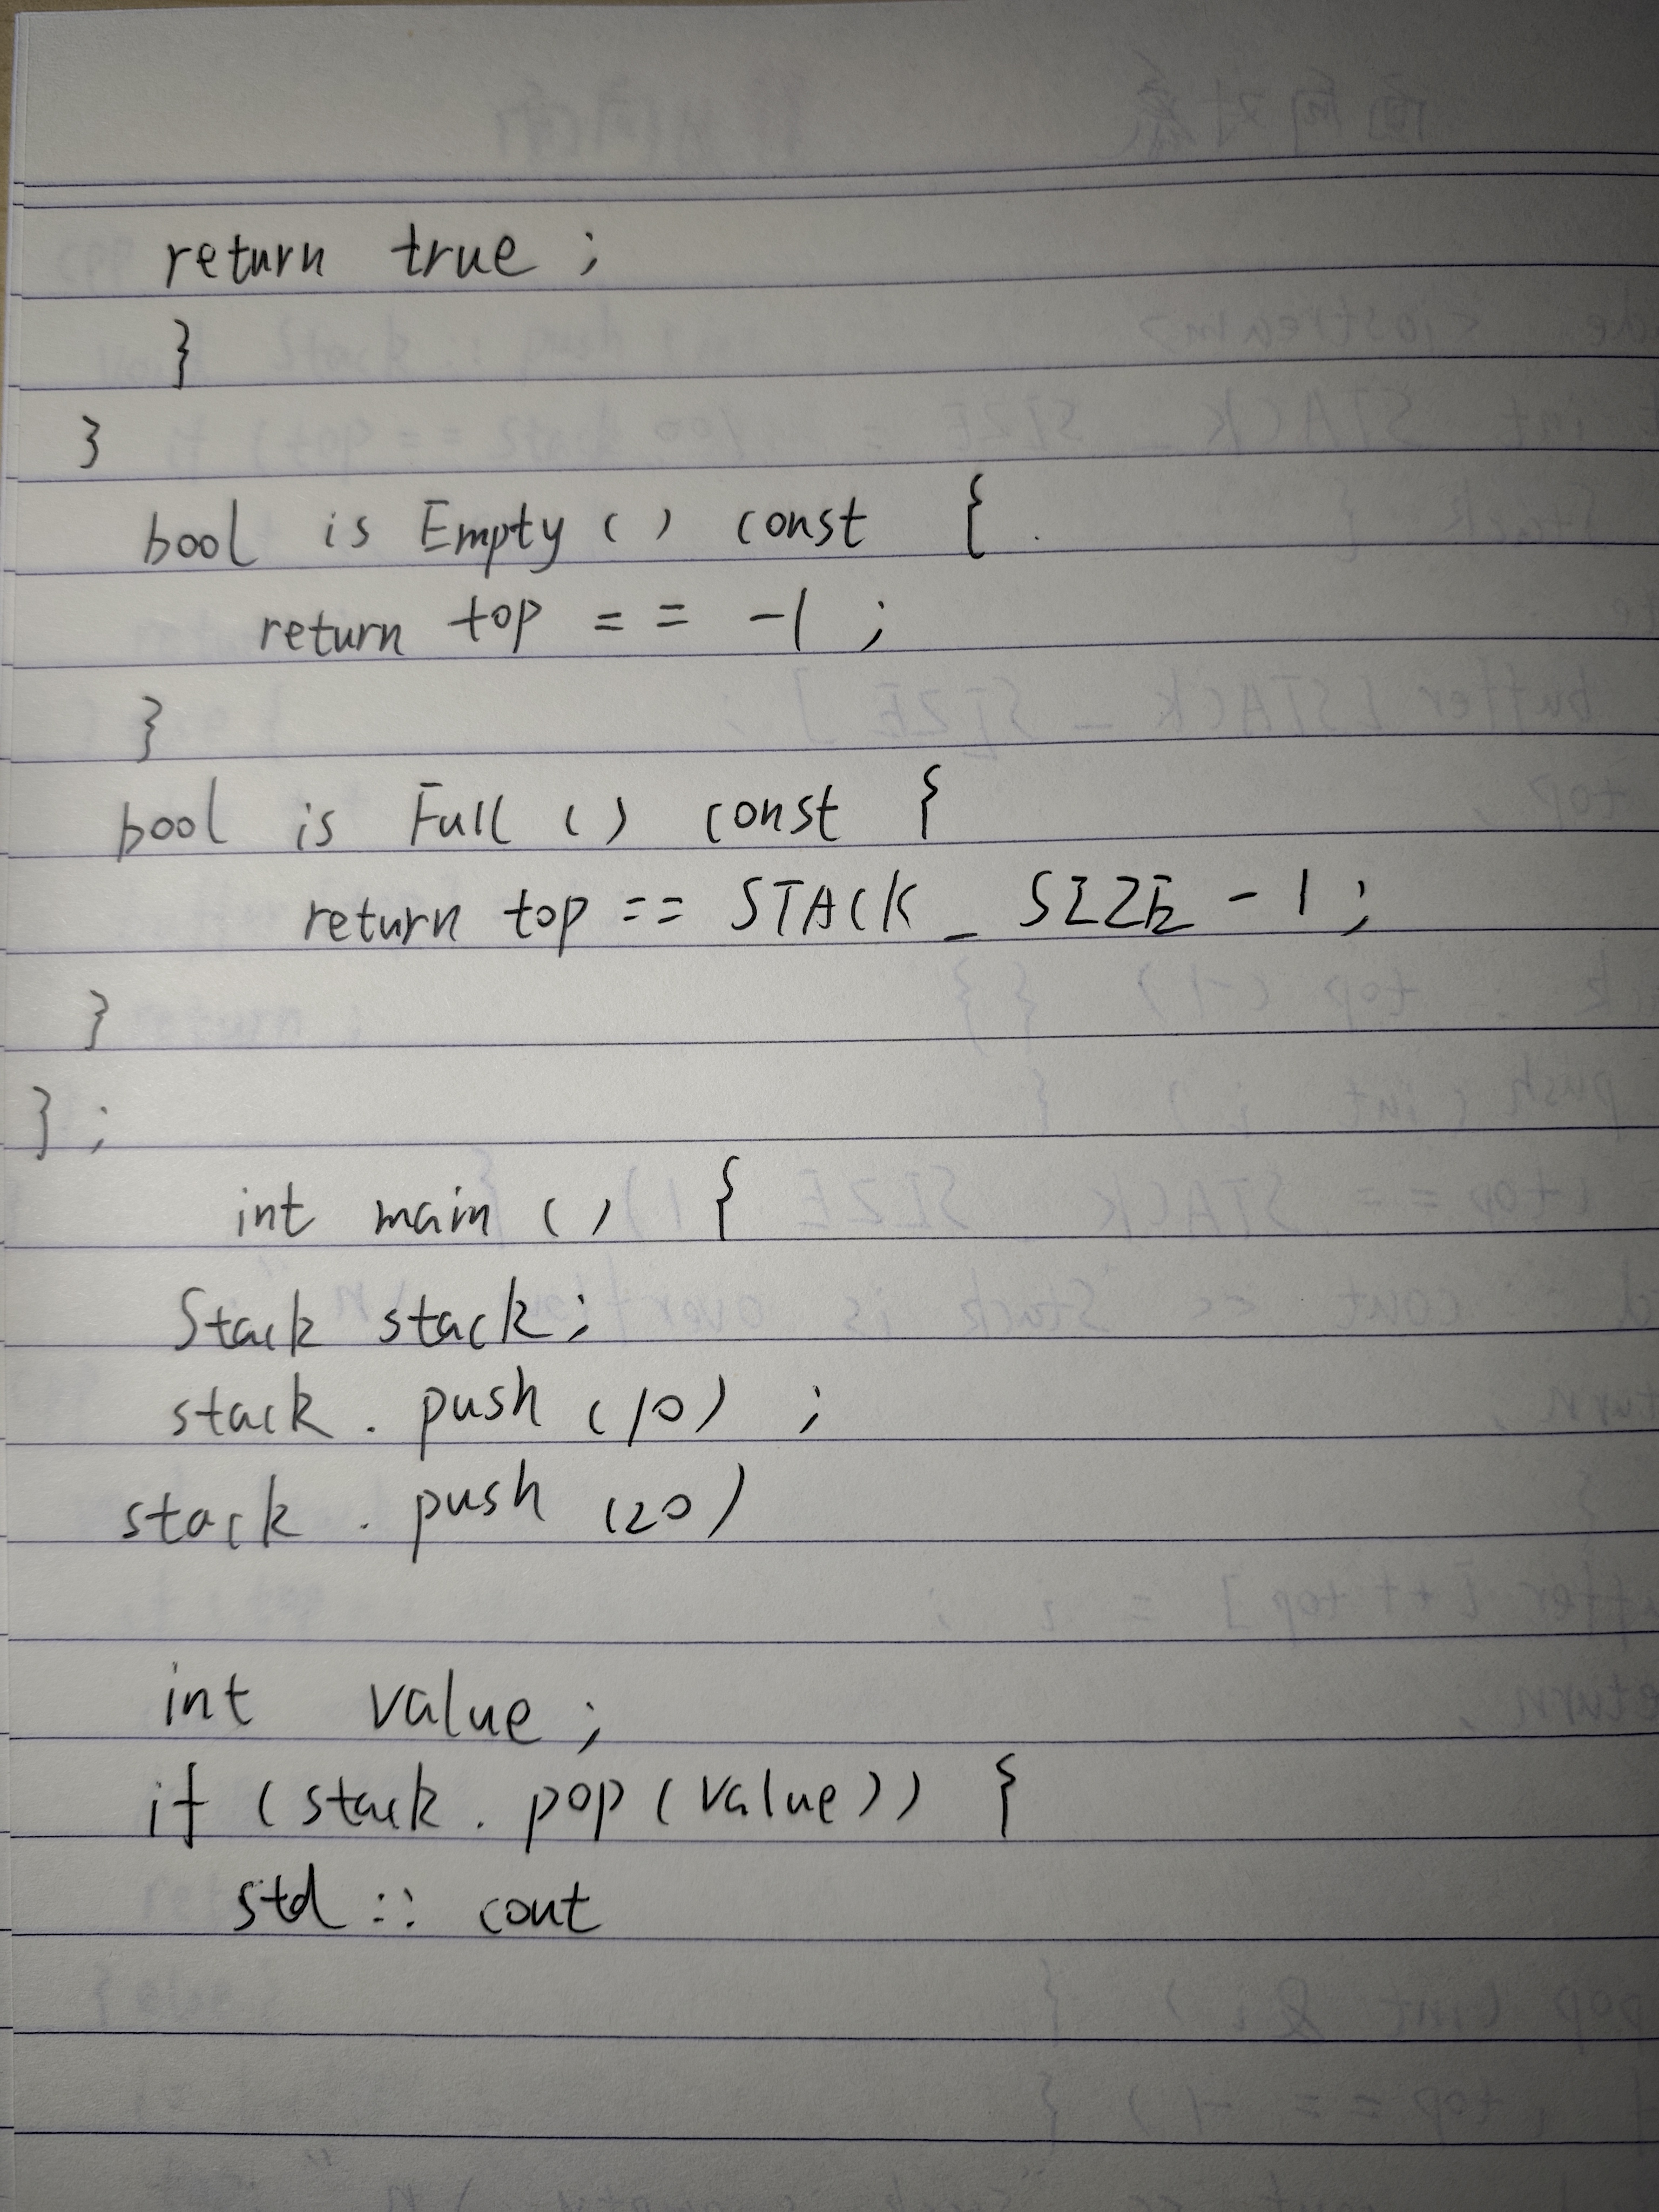 return true ;
}
}
bool is Empty ( ) const {
return top = = -1 ;
}
bool is Full ( ) const {
return top == STACK _ SIZE - 1 ;
}
} ;
int main ( ) {
Stack stack ;
stack . push ( 10 ) ;
stack . push ( 20 )
int value ;
if ( stack . pop ( value ) ) {
std :: cout